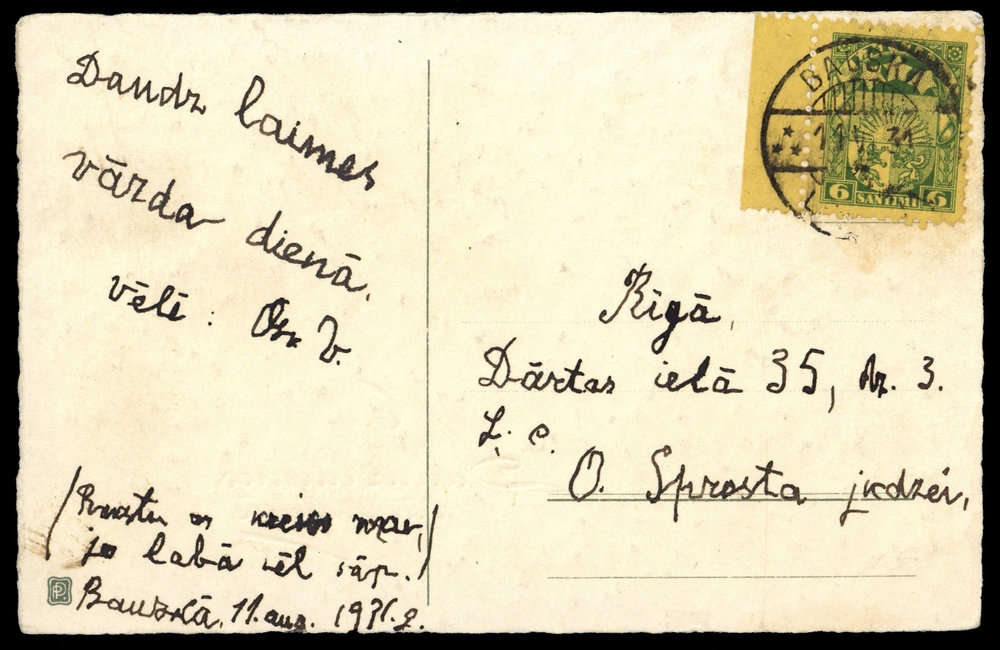 Daudz laimes
vārda dienā.
vēlē: Osk. V.
(Rakstu ar kreiso roku,
jo labā vēl sāp.)
Bauskā, 11. aug. 1931. g.
BAUSKA
6 SANTIMI 6
Rīgā,
Dārtas ielā 35, dz. 3.
Ļ. c.
O. Sprosta jkdzei,
P.